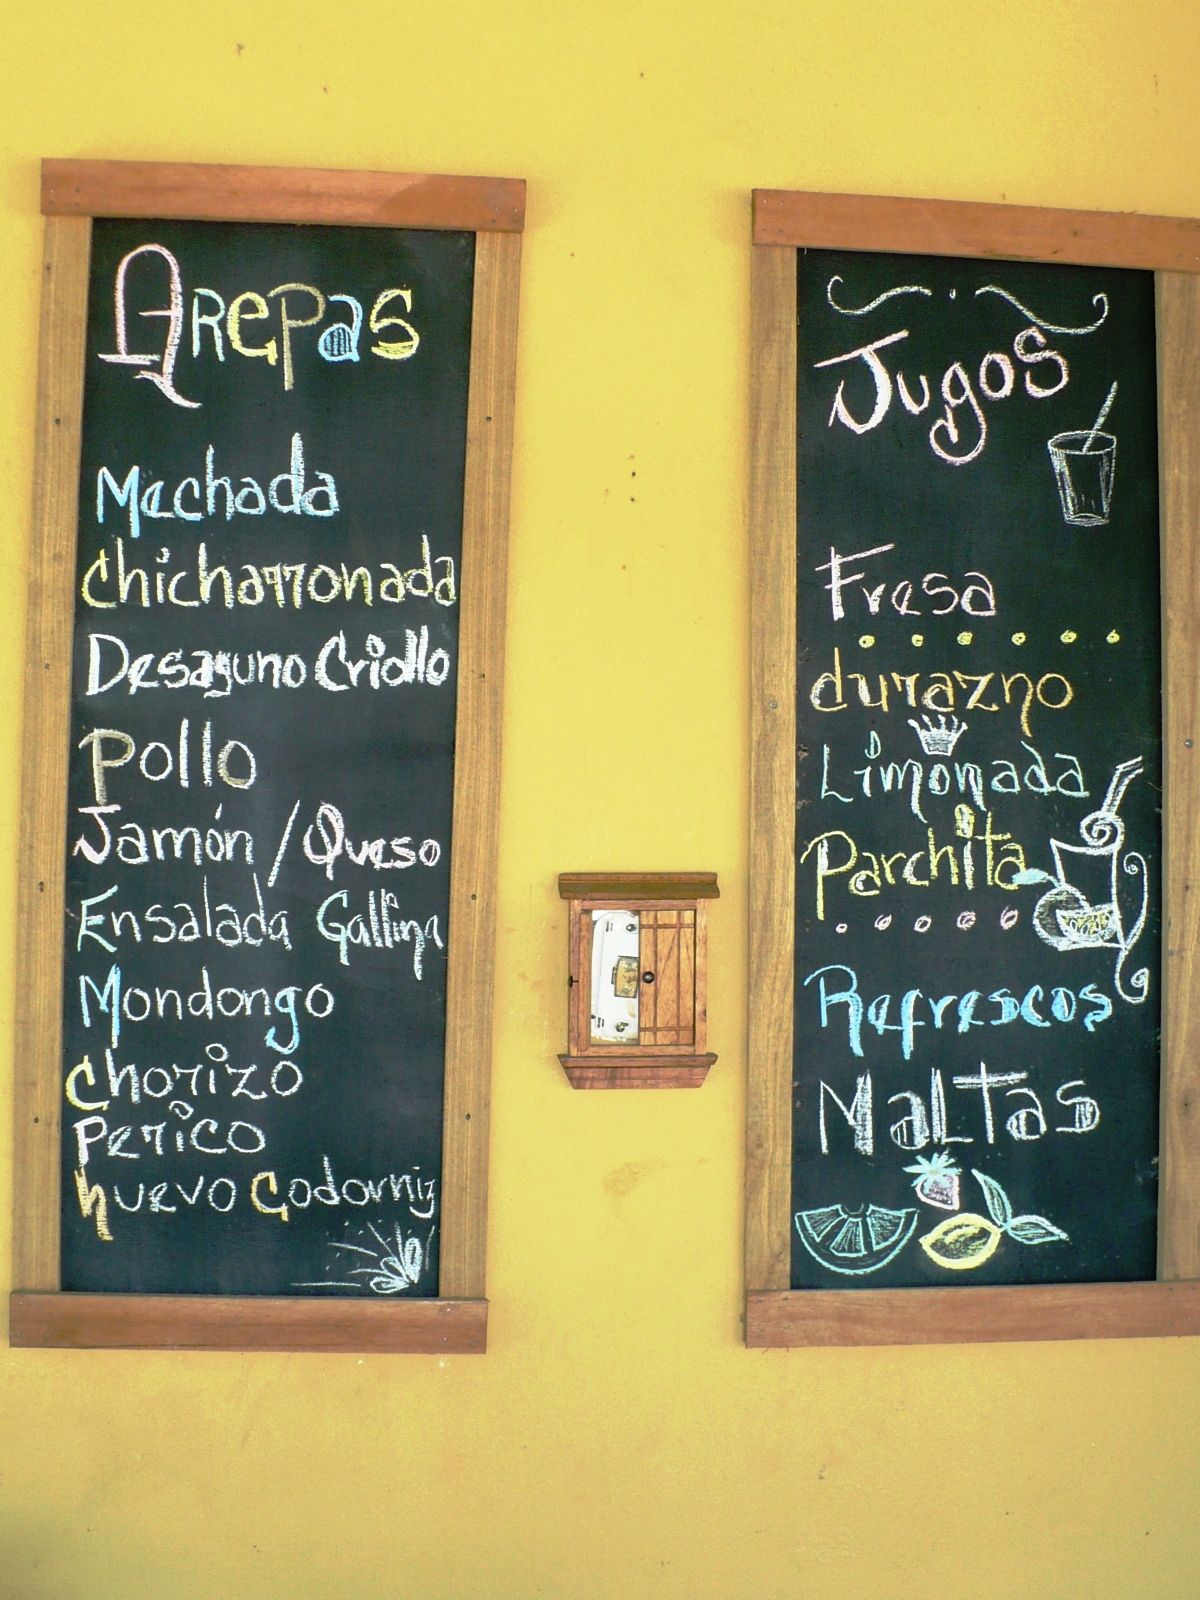 Arepas
Mechada
Chicharronada
Desayuno Criollo
Pollo
Jamón / Queso
Ensalada Gallina
Mondongo
Chorizo
Perico
huevo Codorniz
Jugos
Fresa
durazno
Limonada
Parchita
Refrescos
MaLTas